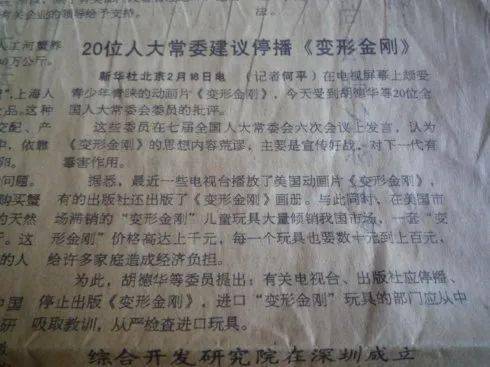 有关企业的领导给予支持。
20位人大常委建议停播《变形金刚》
新华社北京2月18日电 （记者何平）在电视屏幕上颇受
青少年青睐的动画片《变形金刚》，今天受到胡德华等20位全
国人大常委会委员的批评。
这些委员在七届全国人大常委会六次会议上发言，认为
《变形金刚》的思想内容荒谬，主要是宣传好战，对下一代有
毒害作用。
据悉，最近一些电视台播放了美国动画片《变形金刚》，
有的出版社还出版了《变形金刚》画册。与此同时，在美国市
场滞销的“变形金刚”儿童玩具大量倾销我国市场，一套“变
形金刚”价格高达上千元，每一个玩具也要数十元到上百元，
给许多家庭造成经济负担。
为此，胡德华等委员提出：有关电视台、出版社应停播、
停止出版《变形金刚》，进口“变形金刚”玩具的部门应从中
吸取教训，从严检查进口玩具。
综合开发研究院在深圳成立
人工河蟹养
万公斤。
上海人
品。这种
交配、产
中，依靠
卵。
问题。
购买蟹
的天然
于。这
的人
中国
研